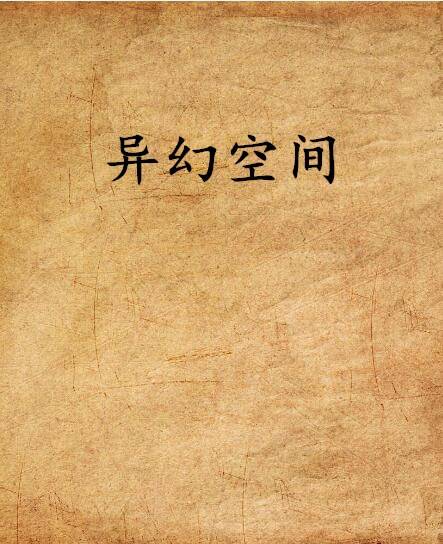 异幻空间